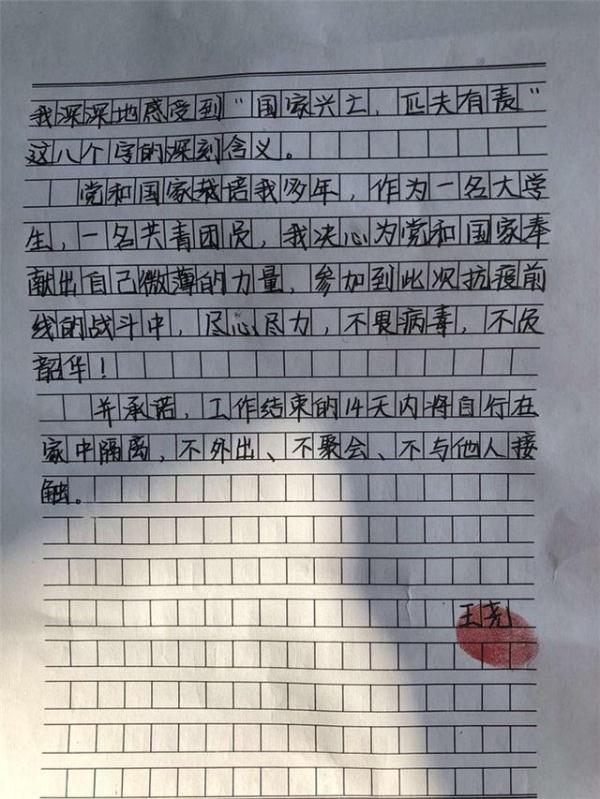 我深深地感受到“国家兴亡，匹夫有责”
这八个字的深刻含义。
党和国家栽培我多年，作为一名大学
生，一名共青团员，我决心为党和国家奉
献出自己微薄的力量，参加到此次抗疫前
线的战斗中，尽心尽力，不畏病毒，不负
韶华！
并承诺，工作结束的14天内将自行在
家中隔离，不外出、不聚会、不与他人接
触。
王尧